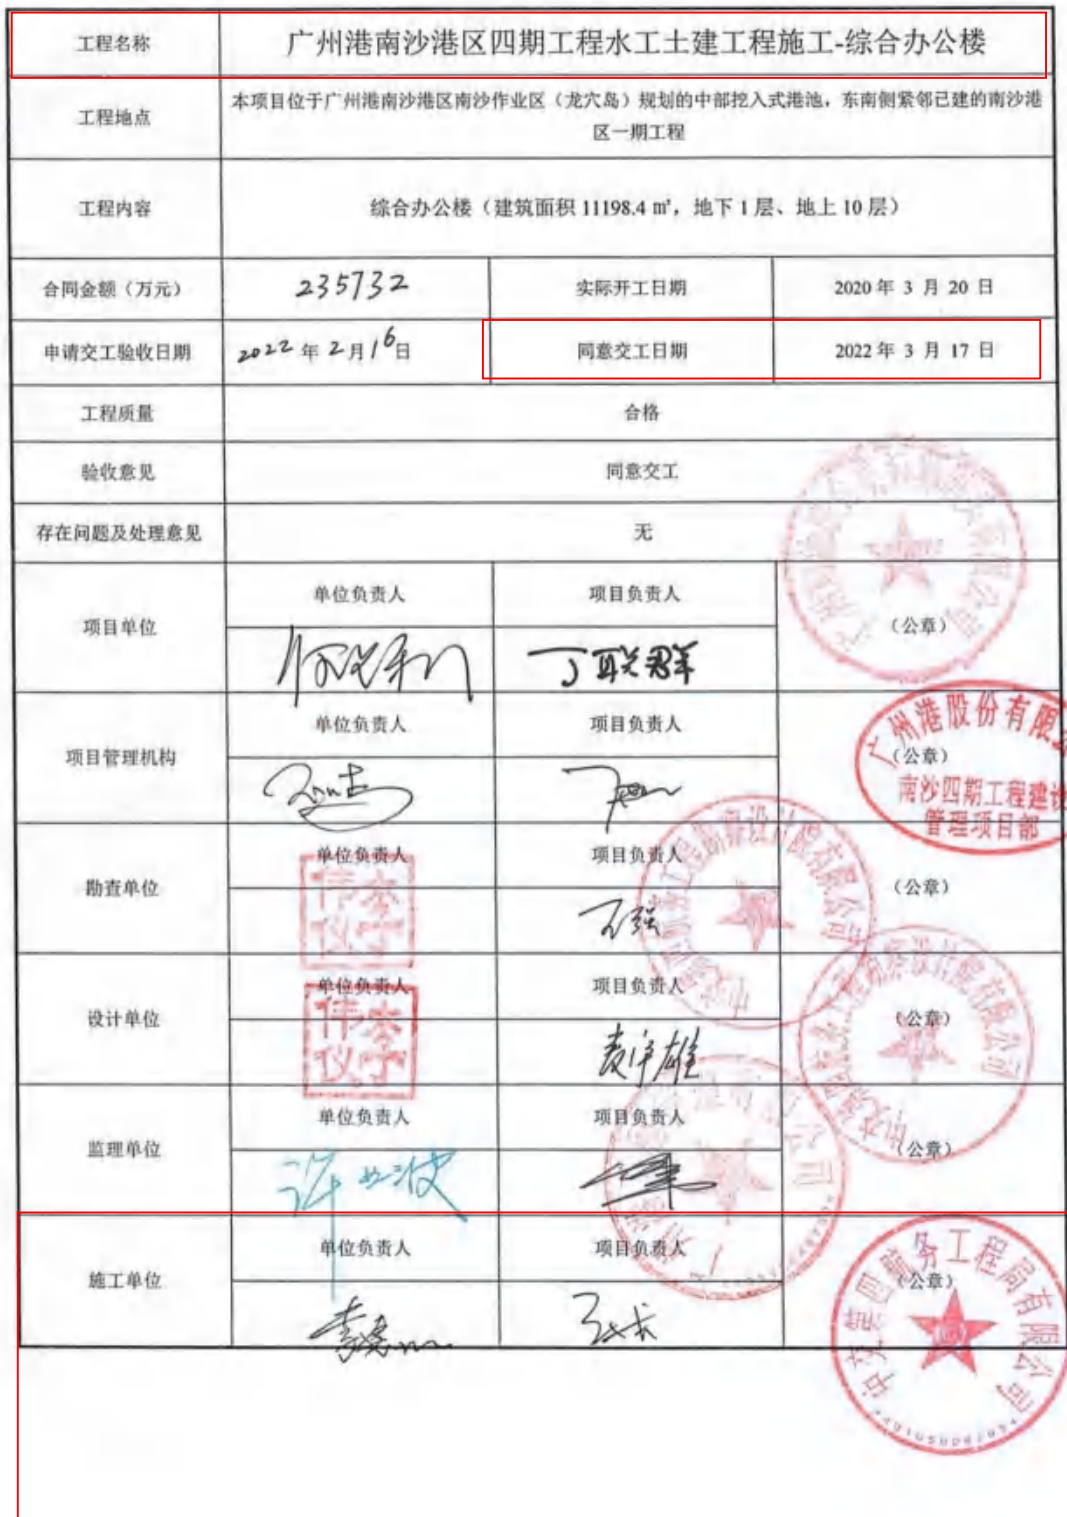 工程名称
广州港南沙港区四期工程水工土建工程施工-综合办公楼
工程地点
本项目位于广州港南沙港区南沙作业区（龙穴岛）规划的中部挖入式港池，东南侧紧邻已建的南沙港
区一期工程
工程内容
综合办公楼（建筑面积 11198.4 ㎡，地下 1 层、地上 10 层）
合同金额（万元）
235732
实际开工日期
2020 年 3 月 20 日
申请交工验收日期
2022 年 2 月 16 日
同意交工日期
2022 年 3 月 17 日
工程质量
合格
验收意见
同意交工
存在问题及处理意见
无
项目单位
单位负责人
项目负责人
（公章）
丁联群
项目管理机构
单位负责人
项目负责人
（公章）
广州港股份有限公
南沙四期工程建设
管理项目部
勘查单位
单位负责人
项目负责人
（公章）
设计单位
单位负责人
项目负责人
（公章）
监理单位
单位负责人
项目负责人
（公章）
施工单位
单位负责人
项目负责人
（公章）
中交第四航务工程局有限公司